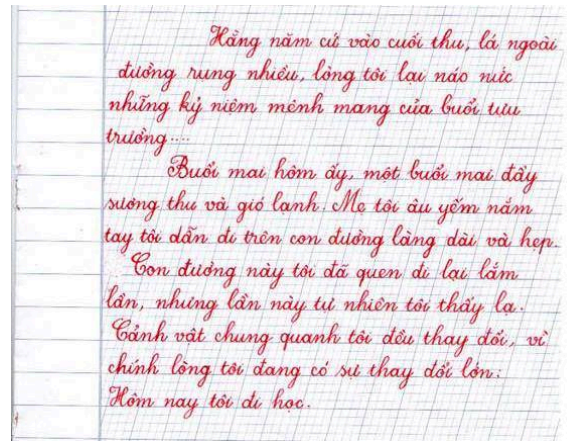 Hằng năm cứ vào cuối thu, lá ngoài
đường rụng nhiều, lòng tôi lại náo nức
những kỷ niệm mênh mang của buổi tựu
trường....
Buổi mai hôm ấy, một buổi mai đầy
sương thu và gió lạnh. Mẹ tôi âu yếm nắm
tay tôi dẫn đi trên con đường làng dài và hẹp.
Con đường này tôi đã quen đi lại lắm
lần, nhưng lần này tự nhiên tôi thấy lạ.
Cảnh vật chung quanh tôi đều thay đổi, vì
chính lòng tôi đang có sự thay đổi lớn:
Hôm nay tôi đi học.